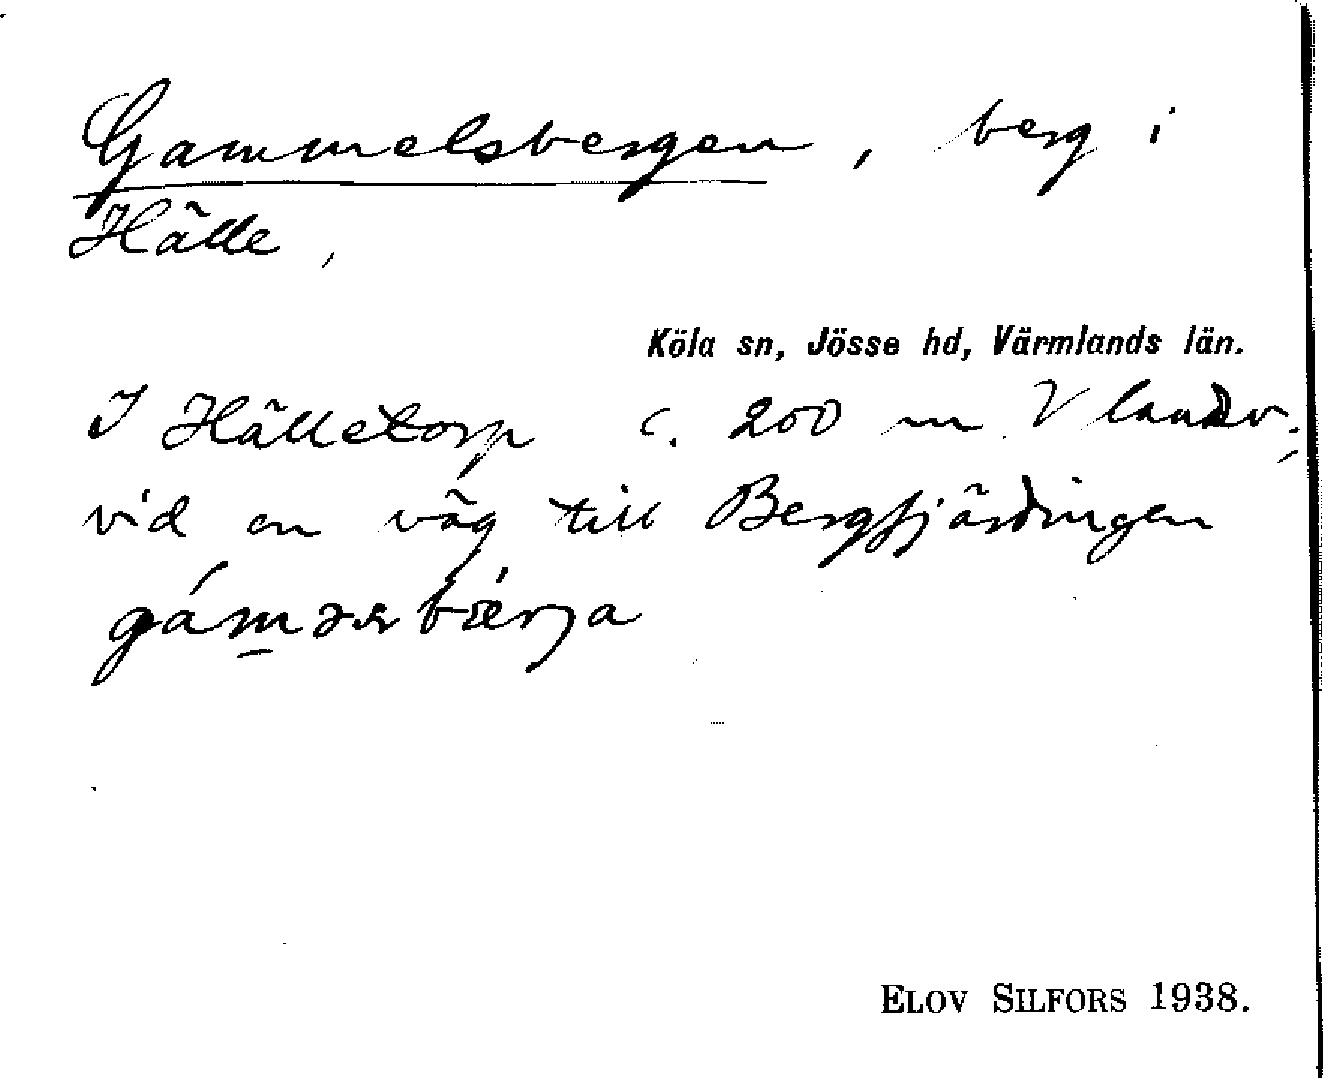 Gammelsbergen, berg i
Hälle,
Köla sn, Jösse hd, Värmlands län.
I Hälletorp c. 200 m V landsv.,
vid en väg till Bergfjärdingen
ELOV SILFORS 1938.